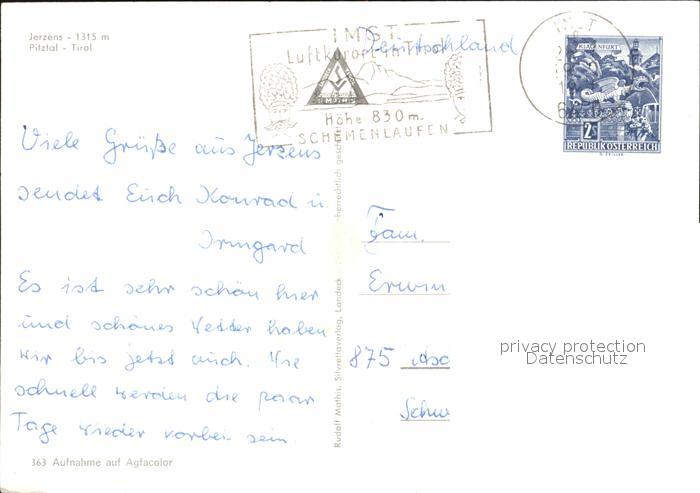 Jerzens - 1315 m
Pitztal - Tirol
IMST
Luftkurort in Tirol
Höhe 830 m.
SCHEMENLAUFEN
Deutschland
IMST
KLAGENFURT
2S
REPUBLIK ÖSTERREICH
Viele Grüße aus Jerzens
sendet Euch Konrad u.
Irmgard
Es ist sehr schön hier
und schönes Wetter haben
wir bis jetzt auch. Wie
schnell werden die paar
Tage wieder vorbei sein.
363 Aufnahme auf Agfacolor
Rudolf Mathis, Silvrettaverlag, Landeck
Fam.
Erwin
875 Asc
Schw
privacy protection
Datenschutz